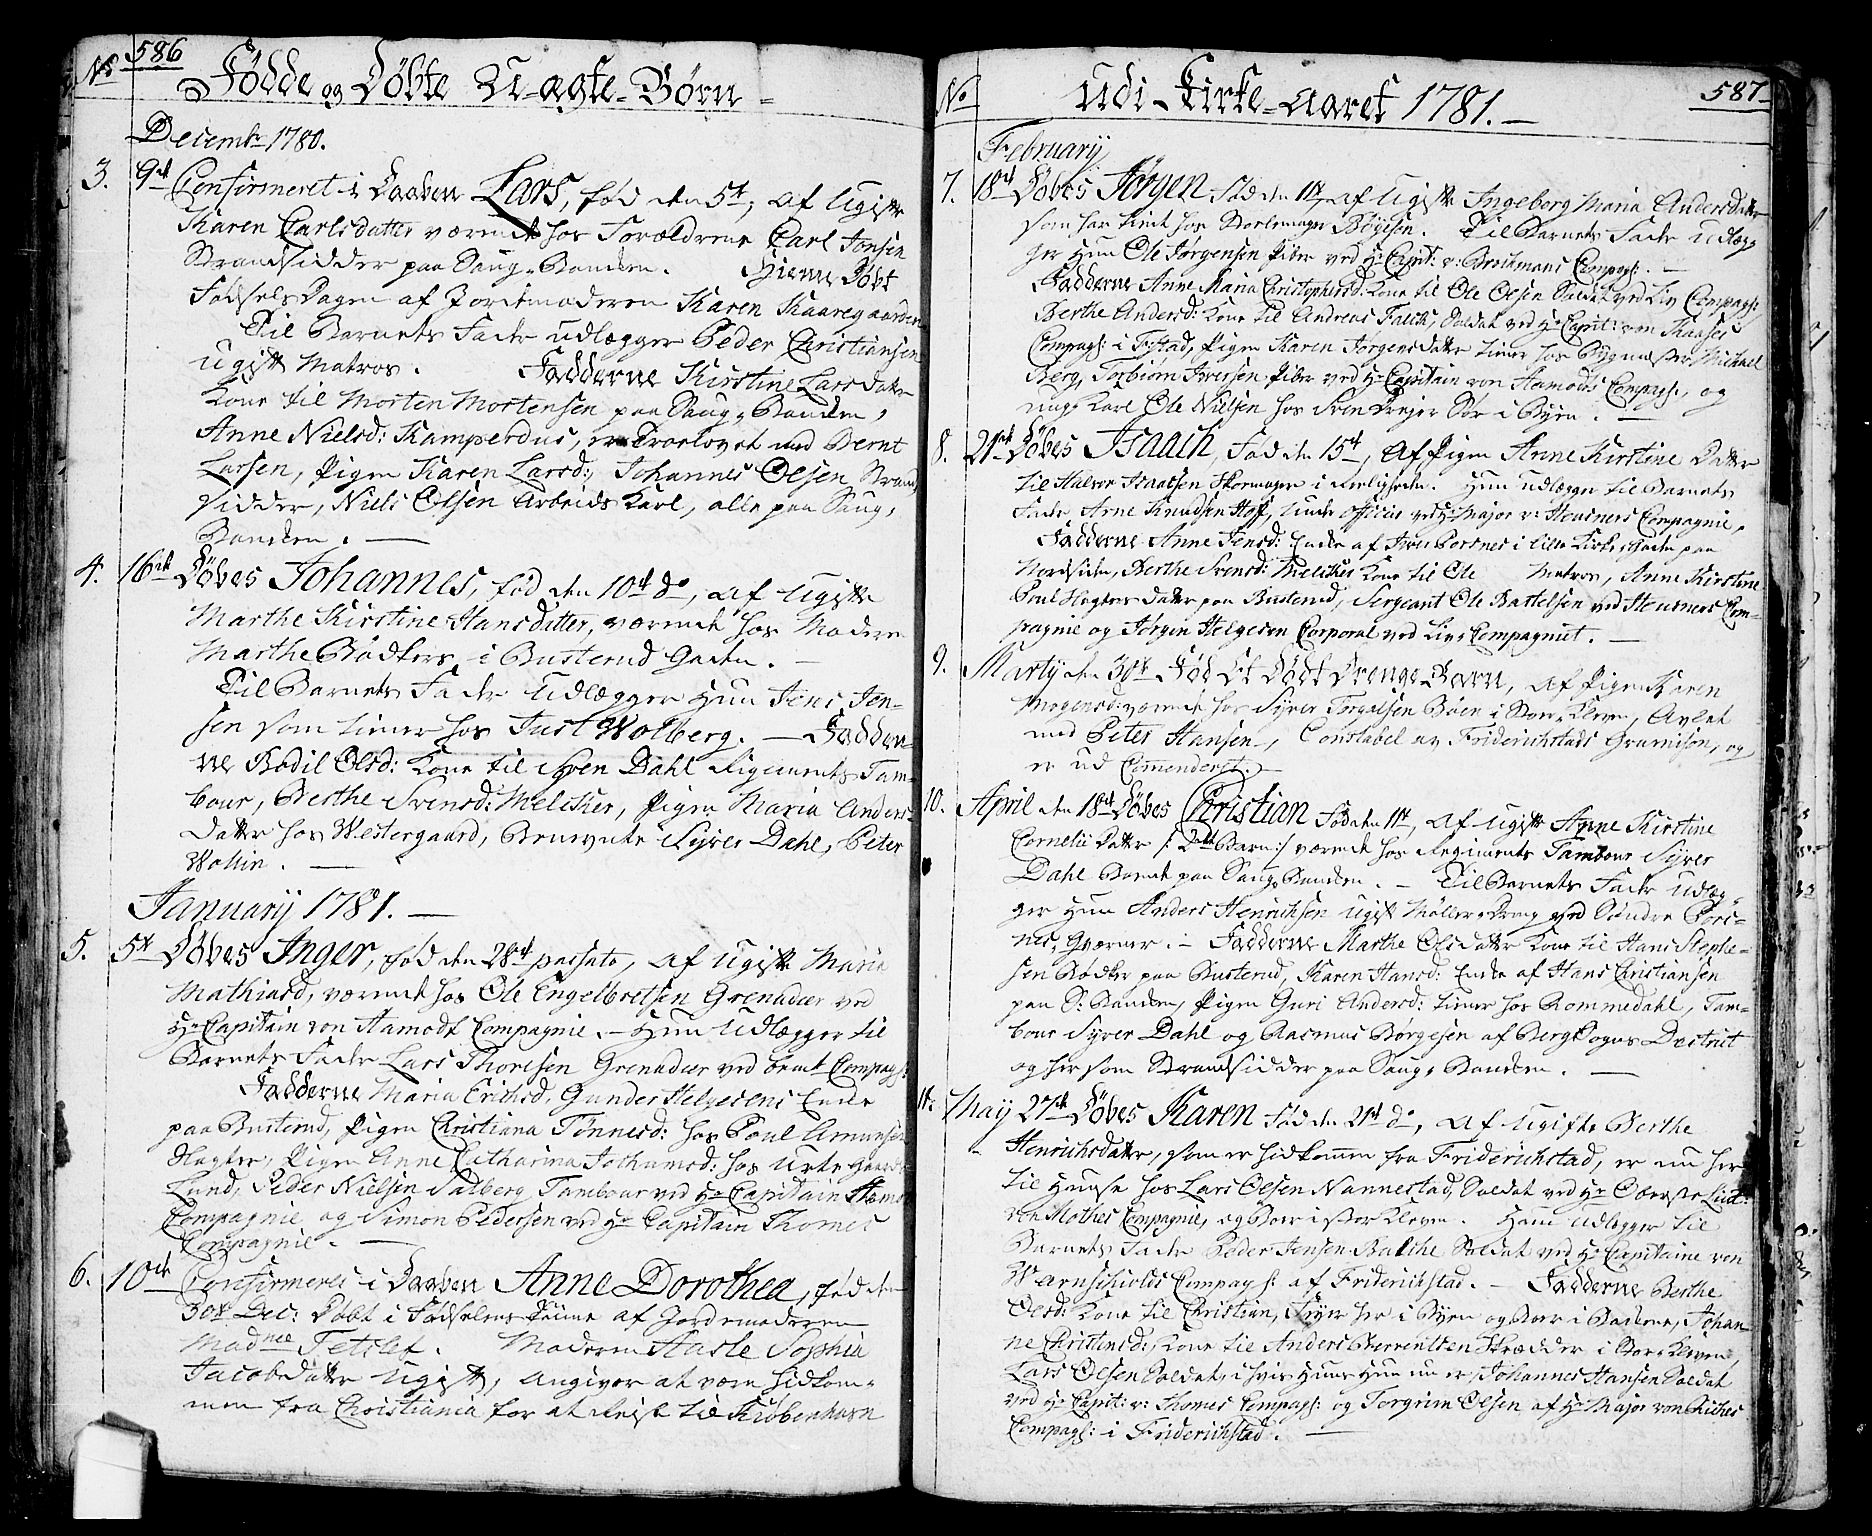 No 586
Fødde og Døbte U-ægte-Børn
Decembr 1780.
3. 9de Confirmeret i Daaben Lars, fød den 5te, af ugifte
Karen Carlsdatter værende hos Forældrene Carl Jonsen
Strandsidder paa Saug-Banden. Hjemme Døbt
Fødsels Dagen af Jordemoderen Karen Kaaregaarden
Til Barnets Fader udlægger Peder Christiansen
ugift Matros. Fadderne Kirstine Larsdatter
Kone til Morten Mortensen paa Saug-Banden,
Anne Nielsd: Kamperhus, er Troelovet med Bernt
Larsen, Pigen Karen Larsd:, Johannes Olsen Strand
sidder, Niels Olsen Arbeids Karl, alle paa Saug-
Banden.
4. 16de Døbes Johannes, fød den 10de do, af ugifte
Marthe Kirstine Hansdatter, værende hos Moderen
Marthe Bødkers i Busterud Gaden.
Til Barnets Fader Udlægger Hun Jens Jen-
sen som tiener hos Just Wolberg. Fadder-
ne Bodil Olsd: Kone til Sven Dahl Regiments Tam-
bour, Berthe Svensd: Melcher, Pigen Maria Anders-
datter hos Westergaard, Syver Dahl, Peter
Wollin.
January 1781.
5. 5te Døbes Inger, fød den 28de passato, af ugifte Maria
Mathiasd, værende hos Ole Engelbretsen Grenadeer ved
Hr Capitain von Hamodt Compagnie. Hun Udlægger til
Barnets Fader Lars Thoresen Grenadeer ved bemte Compagn:
Fadderne Maria Erichsd, Gunder Helgesens Enke
paa Busterud, Pigen Christiana Tønnesd: hos Poul Amunsen
Slagter, Pigen Anne Catharina Johannsd: hos
Lund, Peder Nielsen Salberg Tambour ved Hr Capitain Hamodt
Compagnie og Simon Pedersen ved Hr Capitain Thomes
Compagnie.
6. 10de Confirmeres i Daaben Anne Dorothea, fød den
30te Dec: Døbt i Fødselens Time af Jordemoderen
Madme Tetslef. Moderen Aasle Sophia
Jacobsdatter ugift, Angiver at være hidkom-
men fra Christiania for at Reise til Kiøbenhavn
No Udi Kirke-Aaret 1781. 587
February
7. 18de Døbes Jørgen fød den 11te, af ugifte Ingeborg Maria Andersdatter
som har tient hos Stoelemager Bøyesen. Til Barnets Fader udlæg-
ger Hun Ole Jørgensen Piber ved Hr Capit: v: Brochmans Compagn:
Fadderne Anne Maria Christophersd: Kone til Ole Olsen Soldat ved Liv Compagn:
Berthe Andersd: Kone til Andreas Falch, Soldat ved Hr Capit: von Kaases
Compagn: i Fr:stad, Pigen Karen Jørgensdatter tiener hos Bygmester Michael
Berg, Torbiørn Iversen Piber ved Hr Capitain von Hamodts Compagn:, og
ung Karl Ole Nielsen hos Sven Drejer Sør i Byen.
8. 21de Døbes Isaach, Fød den 15de, Af Pigen Anne Kirstine Datter
til Halvor Isaacsen Skomager i Hun udlægger til Barnets
Fader Arne Knudsen Hoff, Under Officier ved Hr Major v: Heusners Compagnie,
Fadderne Anne Jensd: Enke af Iver Persnes i Lille Kirke Gaden paa
Nordsiden, Berthe Svensd: Melcher Kone til Ole Matros, Anne Kirstine
Poul Slagters datter paa Busterud, Sergeant Ole Bartelsen ved Heusners Com-
pagnie og Jørgen Helgesen Corporal ved Livs Compagniet.
9. Marty den 30te Fød Et Dødt Drenge-Barn, af Pigen Karen
Mogensd: værende hos Syver Torgalsen Bøen i Stor-Kleven, Avlet
med Peter Hansen, Constabel av Friderichstads Guarnison, og
er ud Commenderet.
10. April den 18de Døbes Christian Fød den 11te, af ugifte Anne Kirstine
Cornelii Datter /: 2det Barn :/ værende hos Regiments Tambour Syver
Dahl Boende paa Saug-Banden. Til Barnets Fader udlæg-
ger Hun Anders Henrichsen ugift Møller-Dreng ved Søndre Pors-
nes, Qværner. Fadderne Marthe Olsdatter Kone til Hans Stephe-
sen Bødker paa Busterud, Karen Hansd: Enke af Hans Christiansen
paa S: Banden, Pigen Guri Andersd: tiener hos Rommedahl, Tam-
bour Syver Dahl og Rasmus Børgesen af Berg Sogns Destrict
og her som Strandsidder paa Saug-Banden.
11. May 27de Døbes Karen Fød den 21de do, af Ugifte Berthe
Henrichsdatter, som er hidkommen fra Friderichstad, er nu her
til Huuse hos Lars Olsen Nannestad, Soldat ved Hr Oberste Lieut:
von Mothes Compagnie, og Boer i Stor Kleven. Hun udlægger til
Barnets Fader Peder Jensen Balche Soldat ved Hr Capitaine von
Warnschiolds Compagn: af Friderichstad. Fadderne Berthe
Olsd: Kone til Christian Fryer her i Byen og Boer i Bakkene, Johan-
ne Christensd:, Kone til Anders Skrædder i Stor-Kleven,
Lars Olsen Soldat, i hvis Huus Hun nu er, Johannes Hansen Soldat
ved Hr Capit: v: Thomes Compagn: og Torgrim Olsen af Hr Major von Riches
Compagn: i Friderichstad.